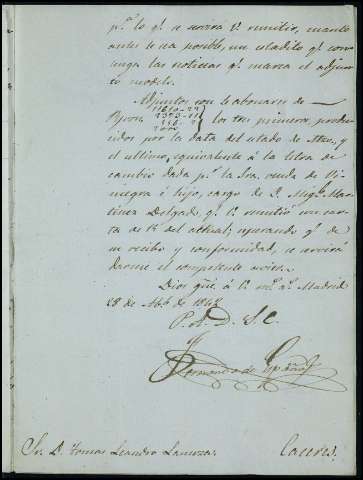 pª lo ql se servirá V. remitir, cuanto
antes le sea posible, un estadito ql con
tenga las noticias ql marca el adjun
to modelo.
Adjuntos son los abonarés de
los tres primeros produ
cidos por la data del estado de Atrs, y
el ultimo, equivalente á la letra de
cambio dada pr la Sra. viuda de
é hijo, cargo de D. Migl Mar
tinez Delgado ql V. remitió en car
ta de del actual; esperando ql de
su recibo y conformidad, se servirá
darme el competente aviso.
Dios gue. á V. ms. as. Madrid
28 de de 1848
P. O. D. S. C.
Fernando de
Sr. D. Tomas Leandro
Caceres.